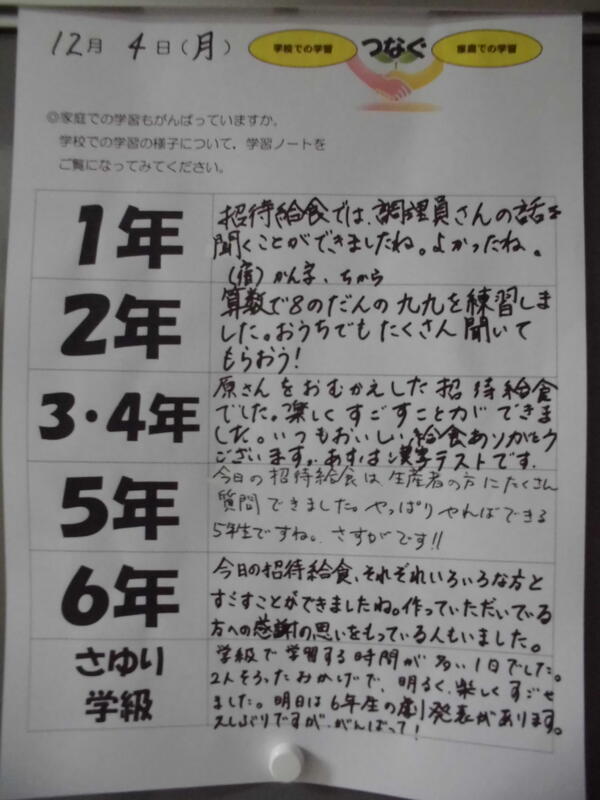 12月 4日(月)
学校での学習 つなぐ 家庭での学習
◎家庭での学習もがんばっていますか。
学校での学習の様子について，学習ノートを
ご覧になってみてください。
1年
招待給食では、調理員さんの話を
聞くことができましたね。よかったね。
(宿)かん字、ちから
2年
算数で8のだんの九九を練習しま
した。おうちでもたくさん聞いて
もらおう!
3・4年
原さんをおむかえした招待給食
でした。楽しくすごすことができま
した。いつもおいしい給食ありがとう
ございます。あすは漢字テストです.
5年
今日の招待給食は生産者の方にたくさん
質問できました。やっぱりやればできる
5年生ですね。さすがです!!
6年
今日の招待給食、それぞれいろいろな方と
すごすことができましたね。作っていただいている
方への感謝の思いをもっている人もいました。
さゆり
学級
学級で学習する時間が多い1日でした。
2人そろったおかげで、明るく、楽しくすごせ
ました。明日は6年生の劇発表があります。
久しぶりですが、がんばって!